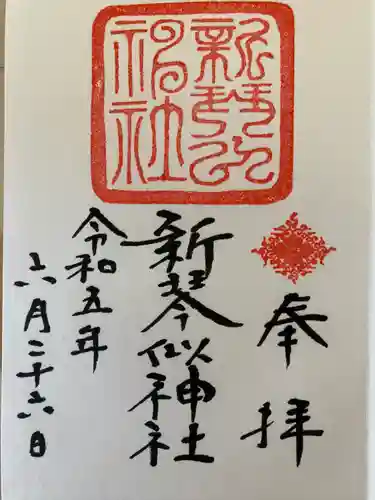 奉拝
新琴似神社
令和五年
六月二十六日
新琴似神社